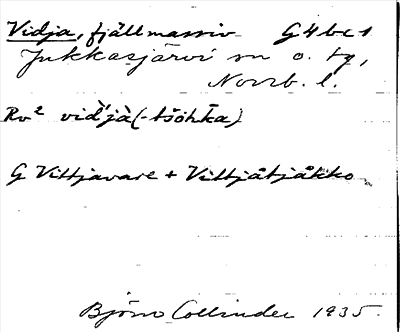 Vidja, fjällmassiv G4bc1
Jukkasjärvi sn o. tg,
Norrb. l.
Rv² vid'jà (-tšòhka)
G Vittjavare + Vittjåtjåkko
Björn Collinder 1935.